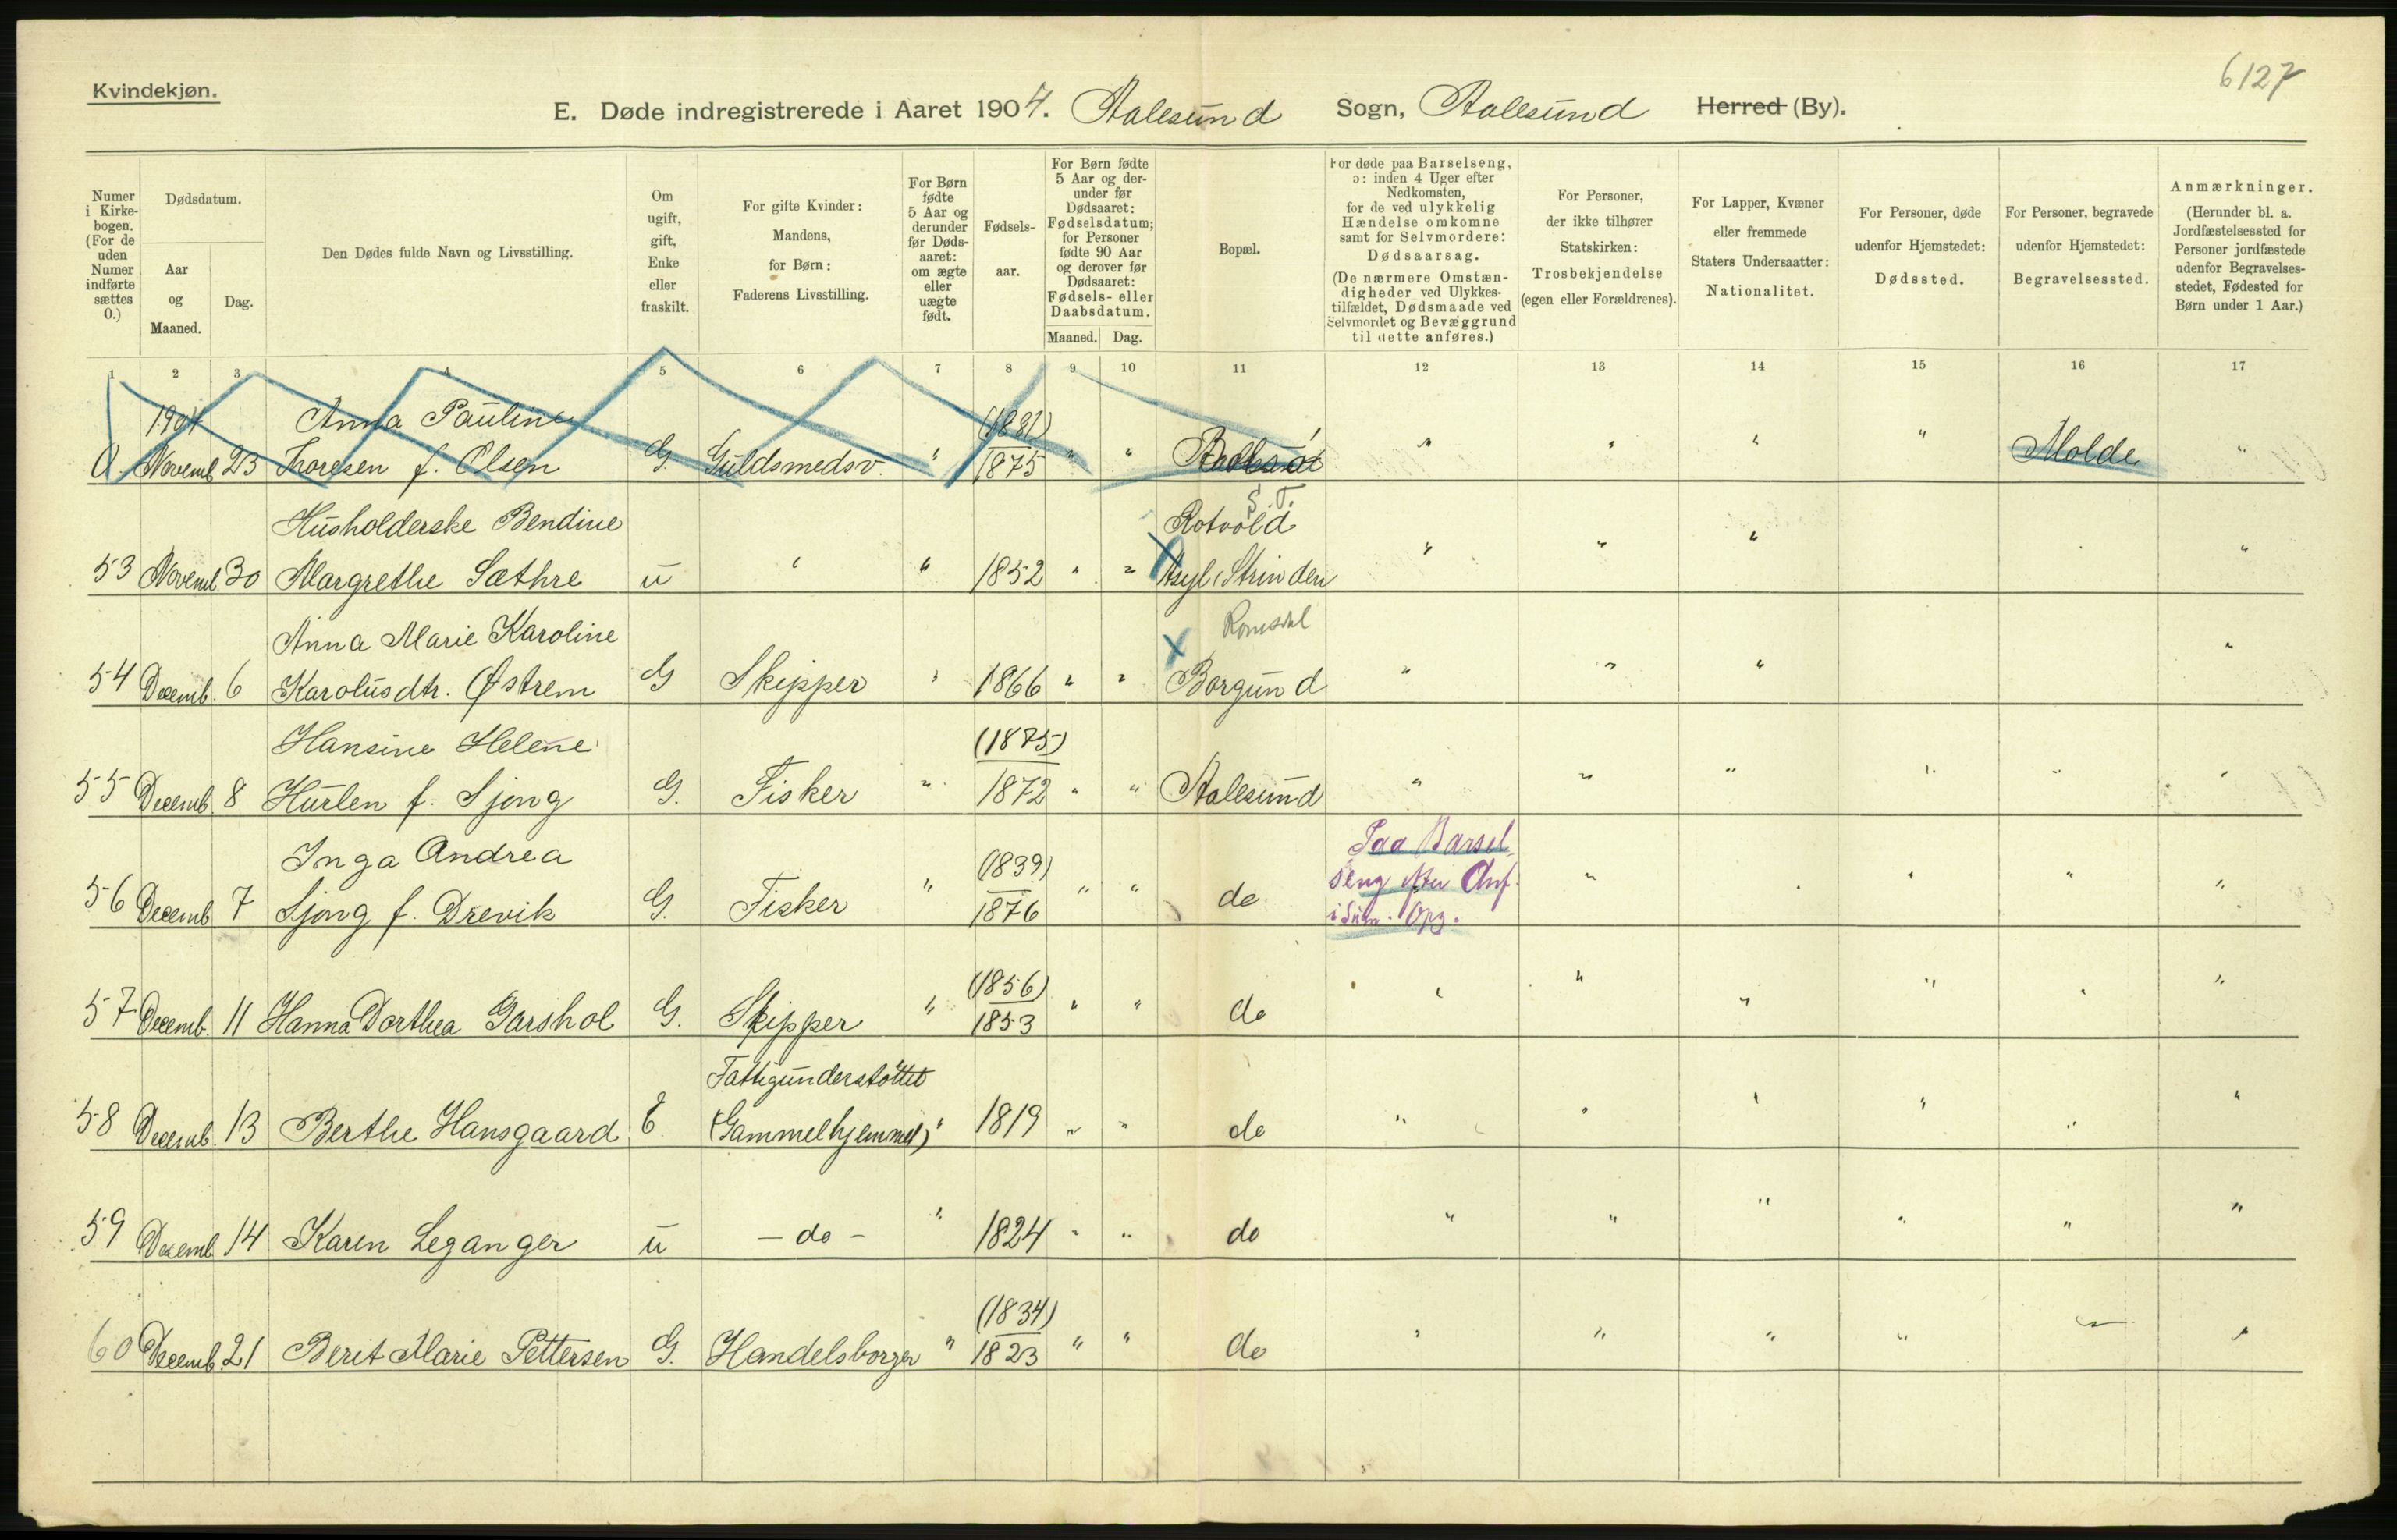 6127
Kvindekjøn.
E. Døde indregistrerede i Aaret 1904. Aalesund Sogn, Aalesund Herred (By).
Numer i Kirke-bogen. (For de uden Numer indførte sættes 0.)
Dødsdatum.
Aar og Maaned.
Dag.
Den Dødes fulde Navn og Livsstilling.
Om ugift, gift, Enke eller fraskilt.
For gifte Kvinder: Mandens, for Børn: Faderens Livsstilling.
For Børn fødte 5 Aar og derunder før Døds-aaret: om ægte eller uægte født.
Fødsels-aar.
For Børn fødte 5 Aar og der-under før Dødsaaret: Fødselsdatum; for Personer fødte 90 Aar og derover før Dødsaaret: Fødsels- eller Daabsdatum.
Maaned. Dag.
Bopæl.
For døde paa Barselseng, ɔ: inden 4 Uger efter Nedkomsten, for de ved ulykkelig Hændelse omkomne samt for Selvmordere: Dødsaarsag. (De nærmere Omstæn-digheder ved Ulykkes-tilfældet, Dødsmaade ved Selvmordet og Bevæggrund til dette anføres.)
For Personer, der ikke tilhører Statskirken: Trosbekjendelse (egen eller Forældrenes).
For Lapper, Kvæner eller fremmede Staters Undersaatter: Nationalitet.
For Personer, døde udenfor Hjemstedet: Dødssted.
For Personer, begravede udenfor Hjemstedet: Begravelsessted.
Anmærkninger. (Herunder bl. a. Jordfæstelsessted for Personer jordfæstede udenfor Begravelses-stedet, Fødested for Børn under 1 Aar.)
1 2 3 4 5 6 7 8 9 10 11 12 13 14 15 16 17
1904 Anna Pauline (1881)
0. Novemb 23 Thoresen f. Olsen G. Guldsmedsv. " 1875 " " " " " " Molde "
Husholderske Bendine Rotvold S. T.
53 Novemb. 30 Margrethe Sæthre u " " 1852 " " Asyl (Strinden " " " "
Anna Marie Karoline Romsdal
54 Decemb. 6 Karolusdtr. Østrem G Skipper " 1866 " " Borgund " " " "
Hansine Helene (1875)
55 Decemb. 8 Hurlen f. Sjong G. Fisker " 1872 " " Aalesund " " " " " "
Inga Andrea (1839) Paa Barsel
56 Decemb 7 Sjong f. Drevik G. Fisker " 1876 " " do seng efter " " " "
(1856)
57 Decemb. 11 Hanna Dorthea Garshol G. Skipper " 1853 " " do " " " " " "
Fattigunderstøttet
58 Decemb. 13 Berthe Hansgaard E. (Gammelhjemmet) " 1819 " " do " " " " " "
59 Decemb 14 Karen Leganger u - do - " 1824 " " do " " " " " "
(1834)
60 Decemb. 21 Berit Marie Pettersen G. Handelsborger " 1823 " " do " " " " " "